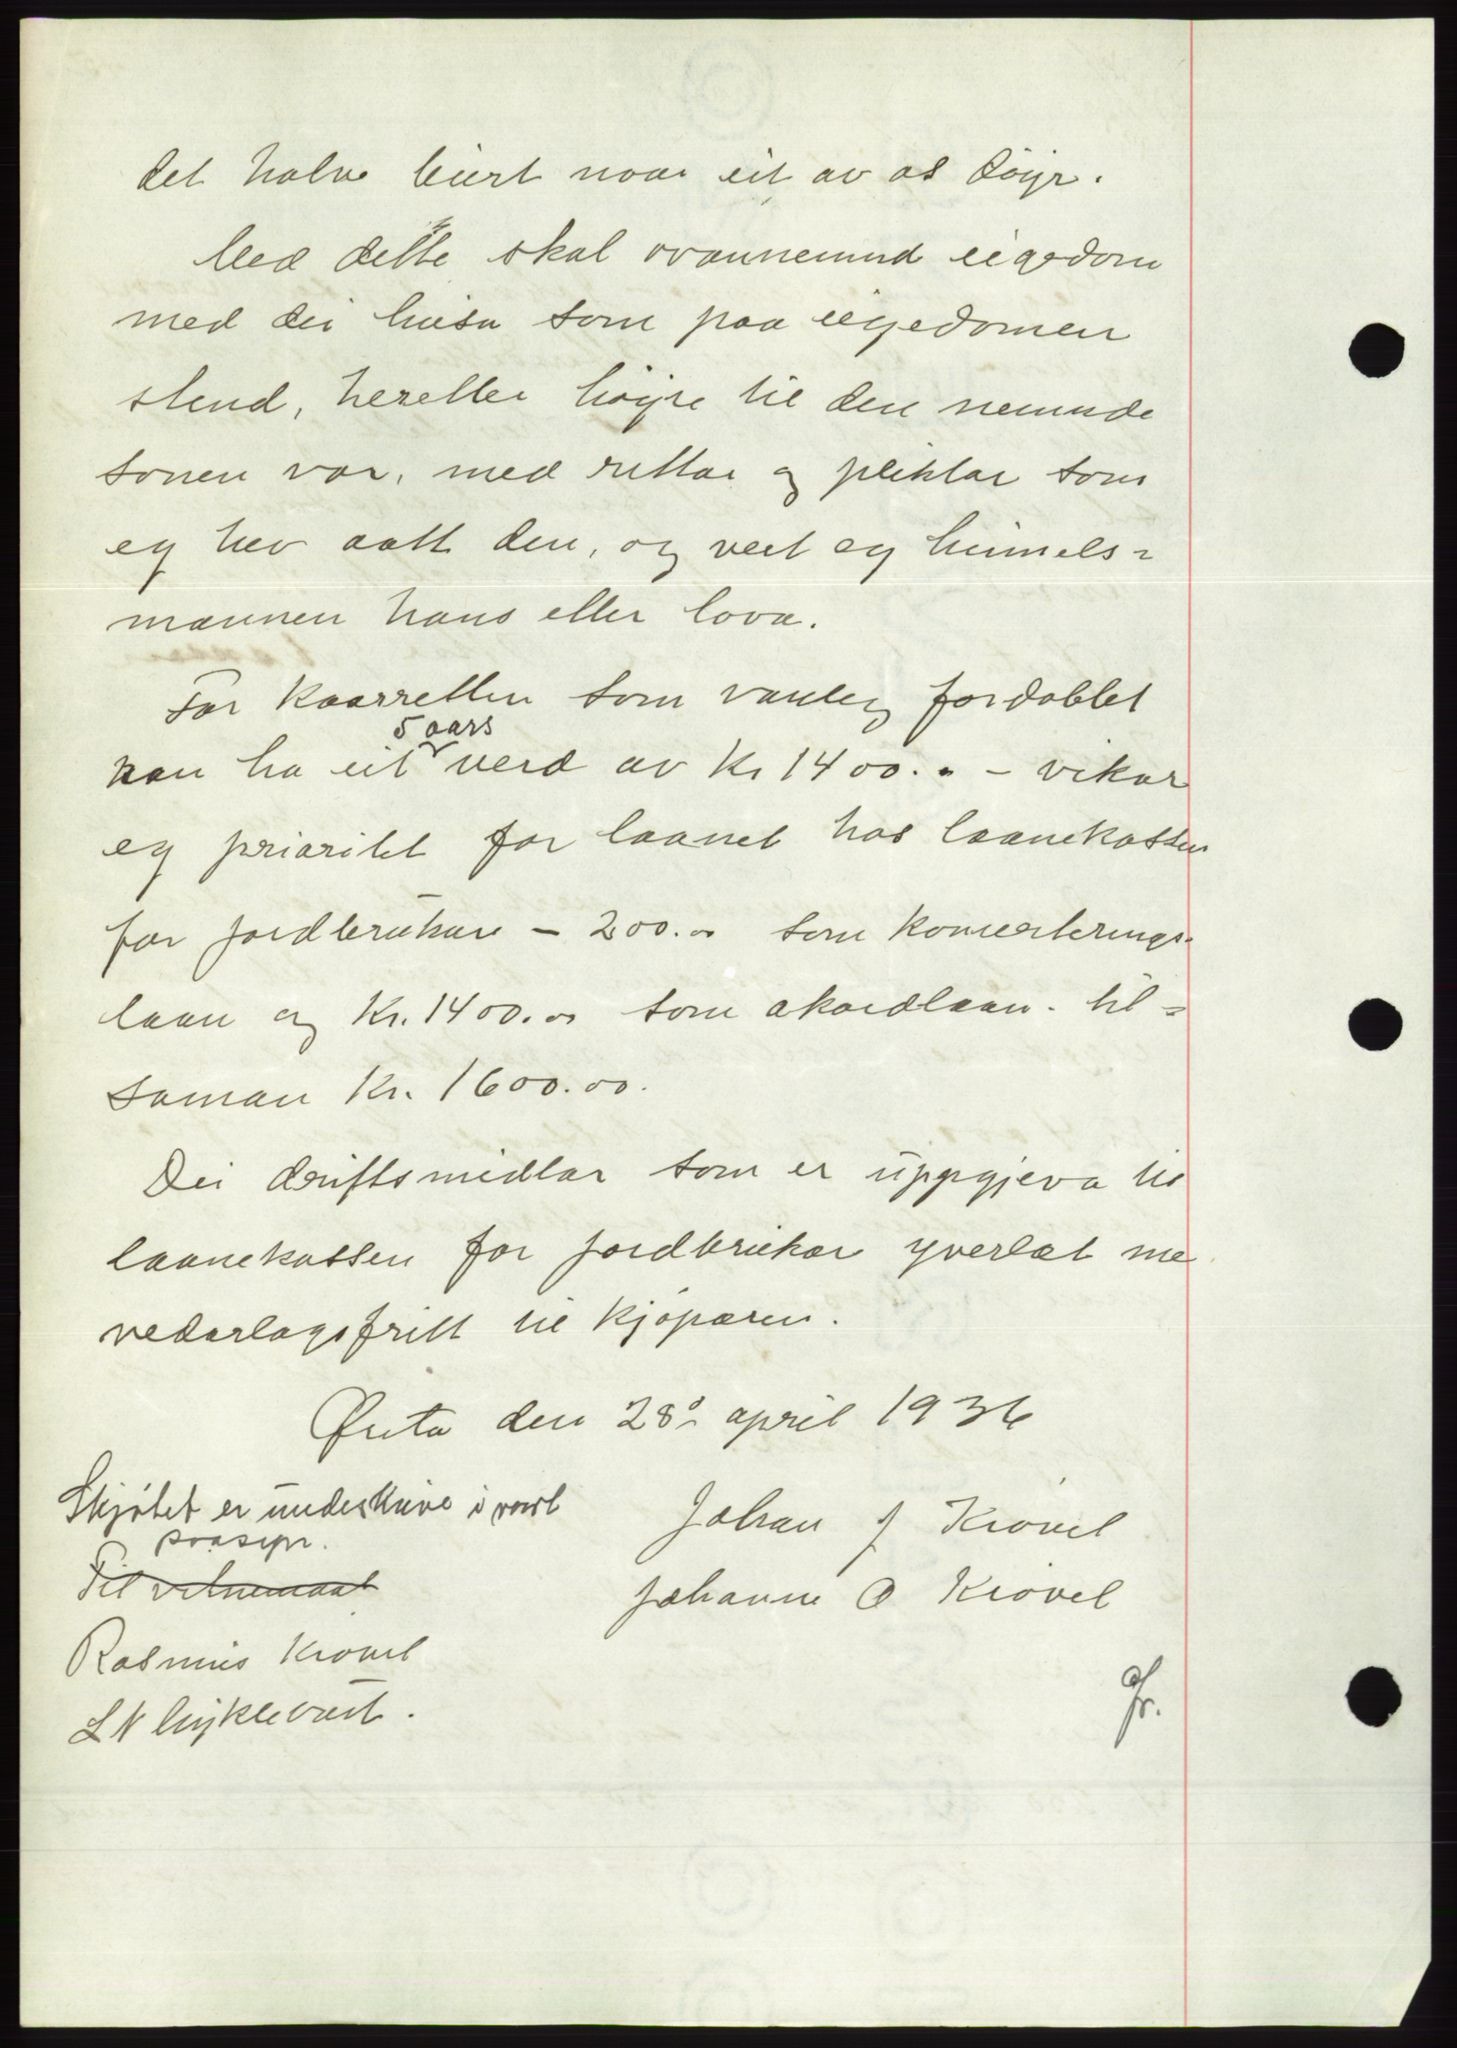 det halve burt naar eit av os döyr.
Med dette skal ovannemnd eigedom
med dei husa som paa eigedomen
stend, heretter höyre til den nemnde
sonen vor, med rettar og pliktar som
eg hev aatt den, og vert eg heimels-
mannen hans etter lova.
For kaarretten som vanleg fordoblet
kan ha eit 5 aars verd av Kr 1400.- - vikar
eg prioritet for laanet hos laanekassen
for jordbrukare - 200.00 som konverterings-
laan og Kr. 1400.00 som akordlaan. til-
saman Kr. 1600.00.
Dei driftsmidlar som er uppgjeva til
laanekassen for jordbrukar yverlæt me
vederlagsfritt til kjöparen.
Ørsta den 28. april 1936
Skjøtet er underskrive i vort
paasyn.
Til vitnemaal
Johan J Krövel
Johanne O Krövel
Rasmus Krövel
L N Myklebust.